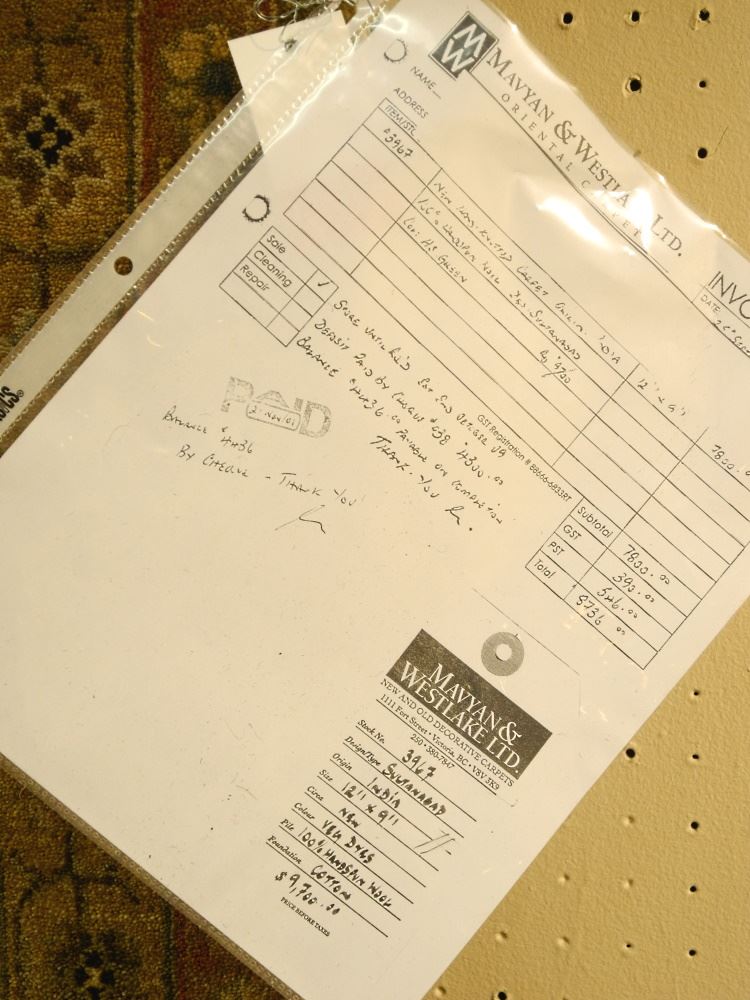 MW
MAVYAN & WESTLAKE LTD.
ORIENTAL CARPET
NAME
ADDRESS
INVO
DATE
ITEM/STK.
3967
NEW HAND-KNOTTED CARPET ORIGIN: INDIA
12'1" x 9'1"
7800.0
100% HANDSPUN WOOL DES: SULTANABAD
COL: H.S. GREEN
Sale
Cleaning ✓
Repair
DEPOSIT PAID BY CHEQUE #038 $4300.00
BALANCE $4436.00 PAYABLE ON COMPLETION
THANK-YOU
PAID
21 NOV/01
BALANCE $4436
BY CHEQUE - THANK YOU
GST Registration # 88666-6833RT
Subtotal 7800.00
GST 390.00
PST 546.00
Total $8736.00
MAVYAN &
WESTLAKE LTD.
NEW AND OLD DECORATIVE CARPETS
1111 Fort Street • Victoria, BC • V8V 3K9
250 • 380-7847
Stock No. 3967
Design/Type SULTANABAD
Origin INDIA
Size 12'11" x 9'11"
Circa NEW
Colour VEG DYES
Pile 100% HANDSPUN WOOL
Foundation COTTON
$9,700.00
PRICE BEFORE TAXES